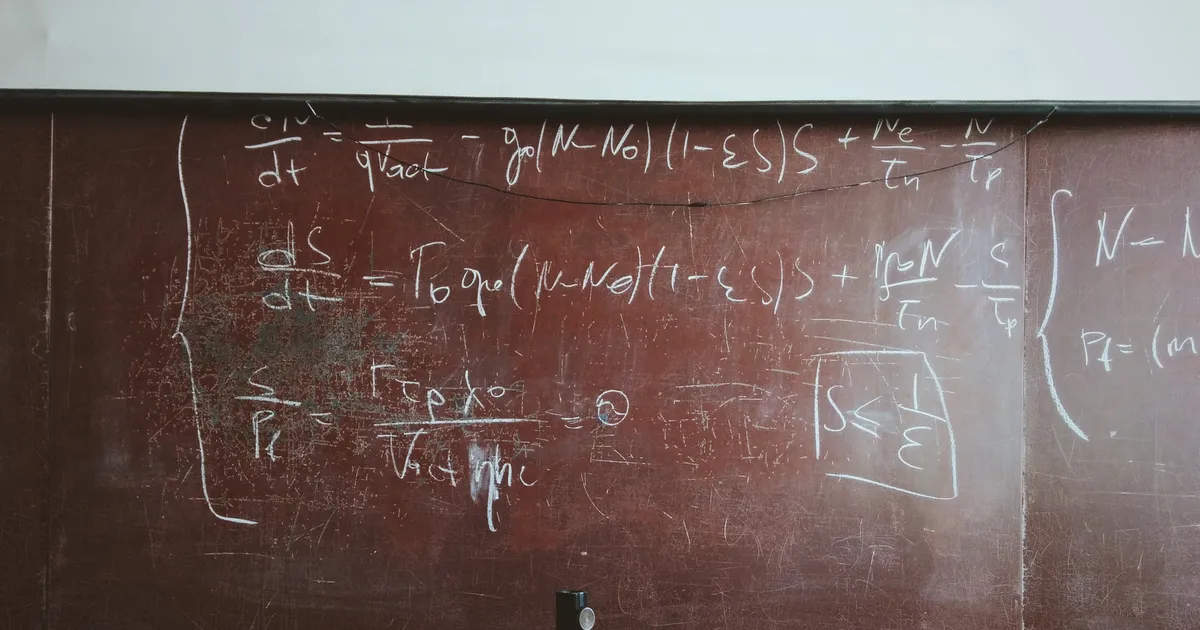 dN/dt = I/qVact - g0(N-N0)(1-εS)S + Ne/τn - N/τp
dS/dt = Γ0g0(N-N0)(1-εS)S + N/τn - S/τp
S/Pf = Γτpλ0/Vactηhc =
S ≤ 1/ε
N - N
Pf = (m